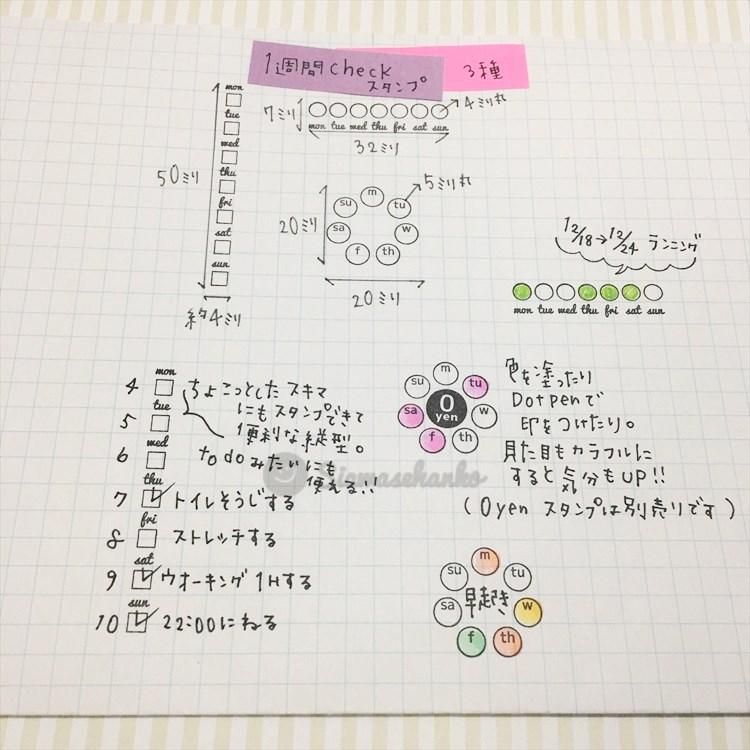 1週間check
スタンプ
3種
mon
tue
wed
thu
fri
sat
sun
50ミリ
約4ミリ
7ミリ
4ミリ丸
mon tue wed thu fri sat sun
32ミリ
5ミリ丸
20ミリ
m
tu
w
th
f
sa
su
20ミリ
12/18→12/24 ランニング
mon tue wed thu fri sat sun
mon
4 ちょこっとしたスキマ
にもスタンプできて
tue
5 便利な縦型。
wed
6 to doみたいにも
使える!!
thu
7 トイレそうじする
fri
8 ストレッチする
sat
9 ウオーキング1Hする
sun
10 22:00にねる
m
tu
w
th
f
sa
su
0
yen
色を塗ったり
Dot penで
印をつけたり。
見た目もカラフルに
すると気分もUP!!
(0yen スタンプは別売りです)
m
tu
w
th
f
sa
su
早起き